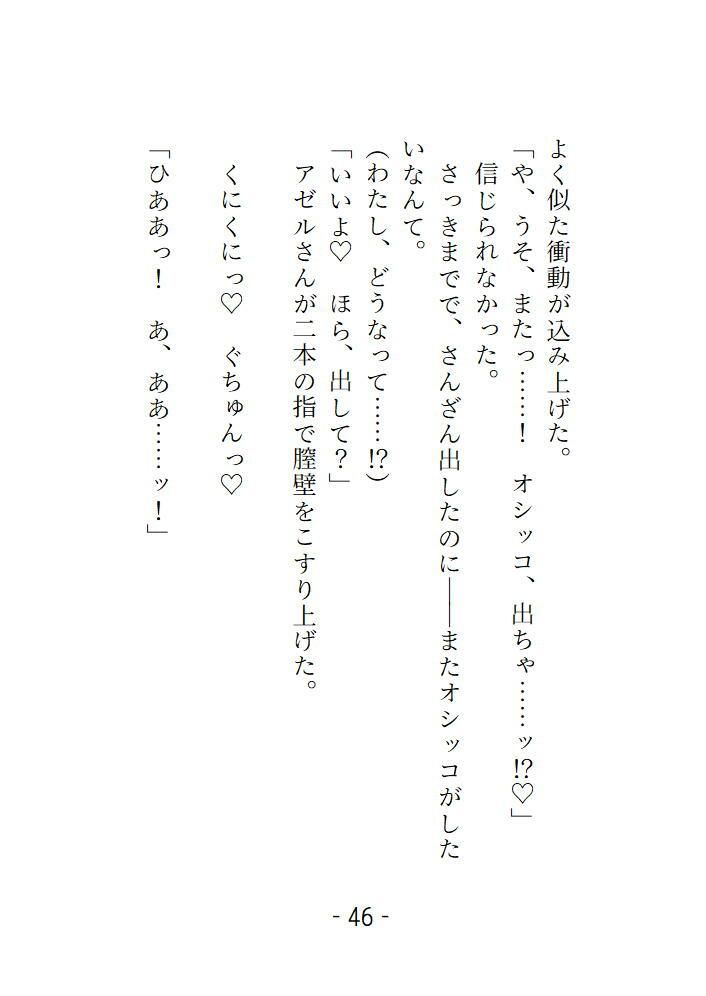 よく似た衝動が込み上げた。
「や、うそ、またっ……！　オシッコ、出ちゃ……ッ!?♡」
信じられなかった。
さっきまでで、さんざん出したのに――またオシッコがした
いなんて。
（わたし、どうなって……!?）
「いいよ♡　ほら、出して？」
アゼルさんが二本の指で膣壁をこすり上げた。
くにくにっ♡　ぐちゅんっ♡
「ひああっ！　あ、ああ……ッ！」
- 46 -